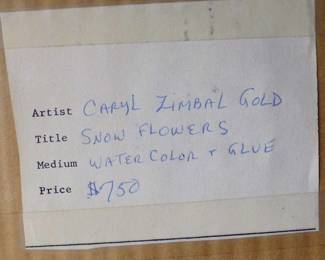 Artist CARYL ZIMBAL GOLD
Title SNOW FLOWERS
Medium WATER COLOR + GLUE
Price $750